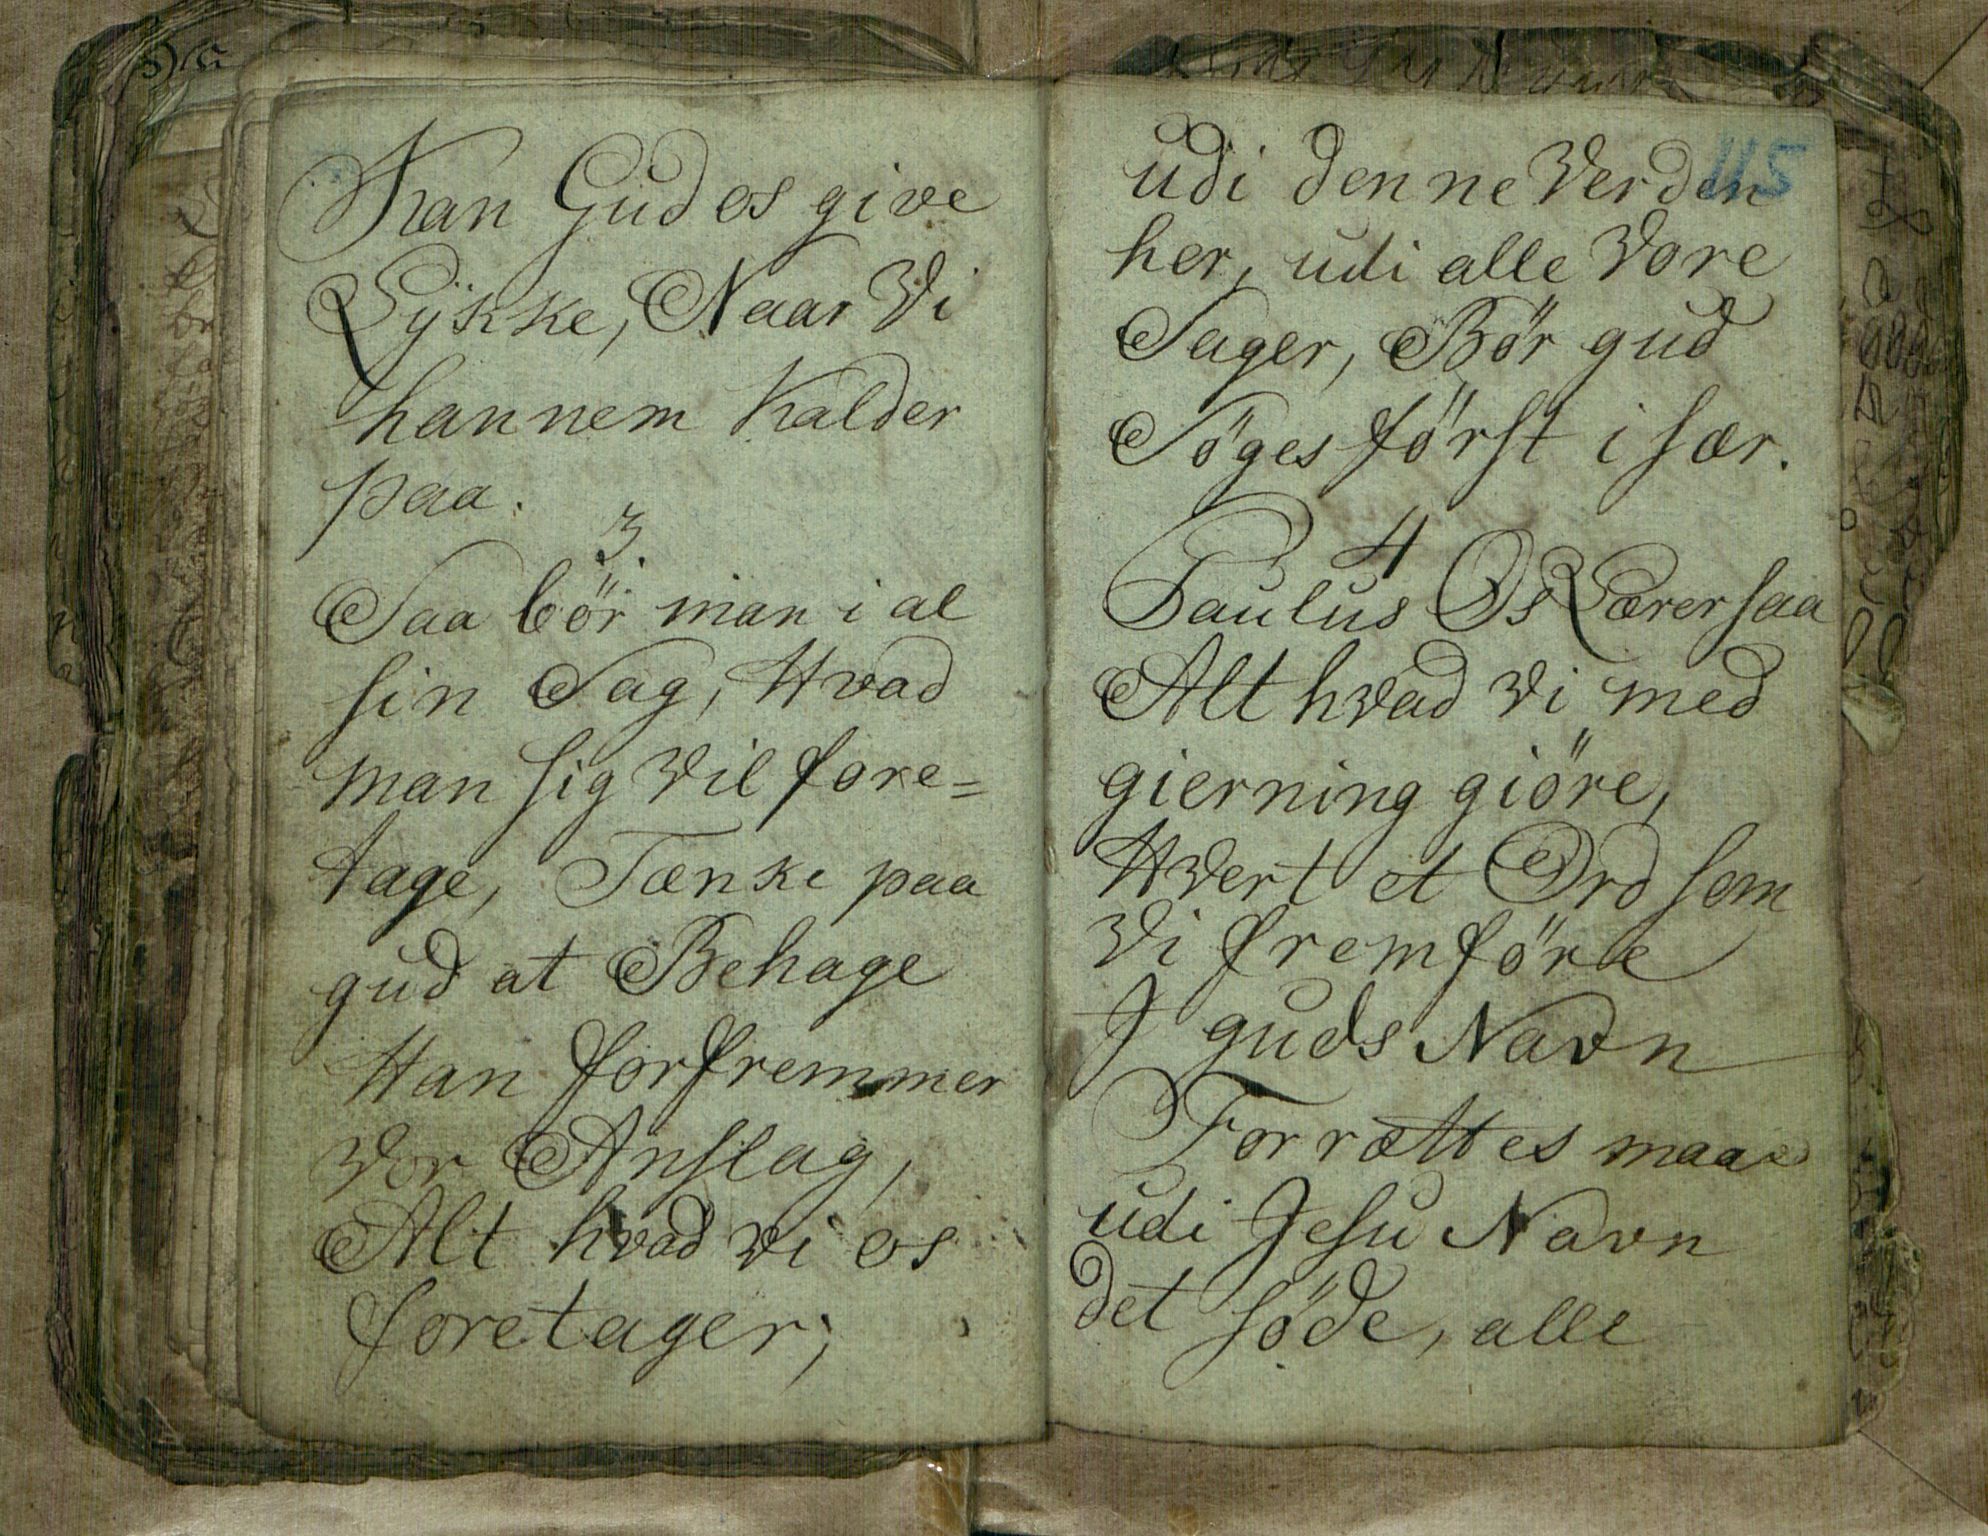 Kan Gud os give
Lÿkke, Naar Vi
hannem Kalder
paa.
3.
Saa bör man i al
sin Sag, Hvad
man sig Vil fore=
tage, Tænke paa
gud at Behage
Han forfremmer
Vor Anslag,
Alt hvad vi os
foretager;
115
udi denne Verden
her, udi alle Vore
Sager, Bör gud
Söges först i sær.
4
Paulus Os Lærer saa
Alt hvad Vi med
gierning giöre,
Hvert et Ord som
Vi fremföre
J guds Navn
Forrættes maae
udi Jesu Navn
det söde, alle